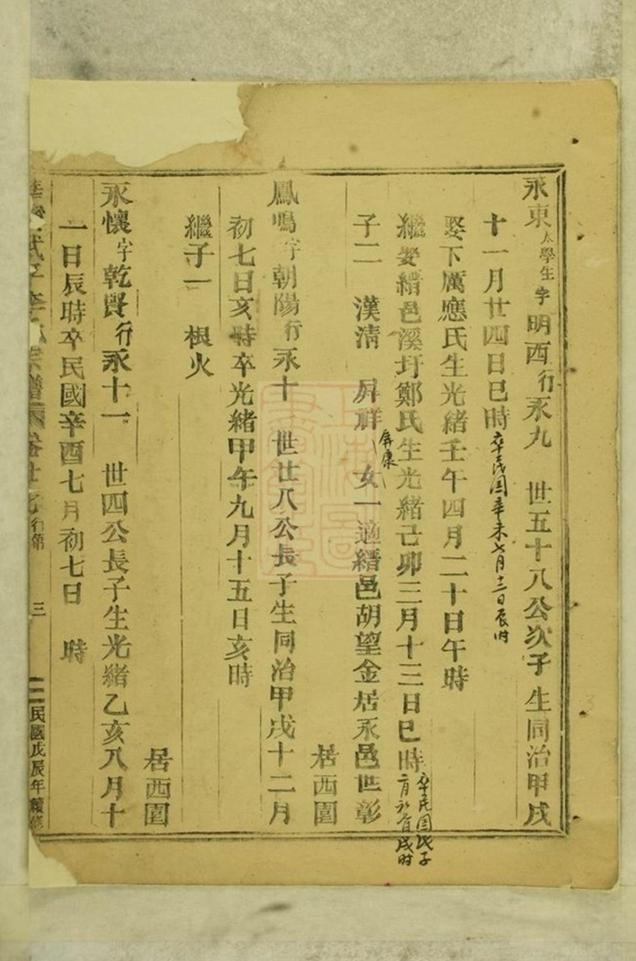 永東太學生字明西行永九 世五十八公次子生同治甲戌
十一月廿四日巳時卒民國辛未七月十二日辰时
娶下厲應氏生光緒壬午四月二十日午時
繼娶縉邑溪圩鄭氏生光緒己卯三月十三日巳時卒民国戊子
月初
戌时
子二 漢清 屏祥 女一適縉邑胡望金居永邑世彰
屏康
居西園
鳳鳴字朝陽行永十 世廿八公長子生同治甲戌十二月
初七日亥時卒光緒甲午九月十五日亥時
繼子一 根火
居西園
永懷字乾賢行永十一 世四公長子生光緒乙亥八月十
一日辰時卒民國辛酉七月初七日 時
宗譜
卷廿
行第
三
民國戊辰年續修